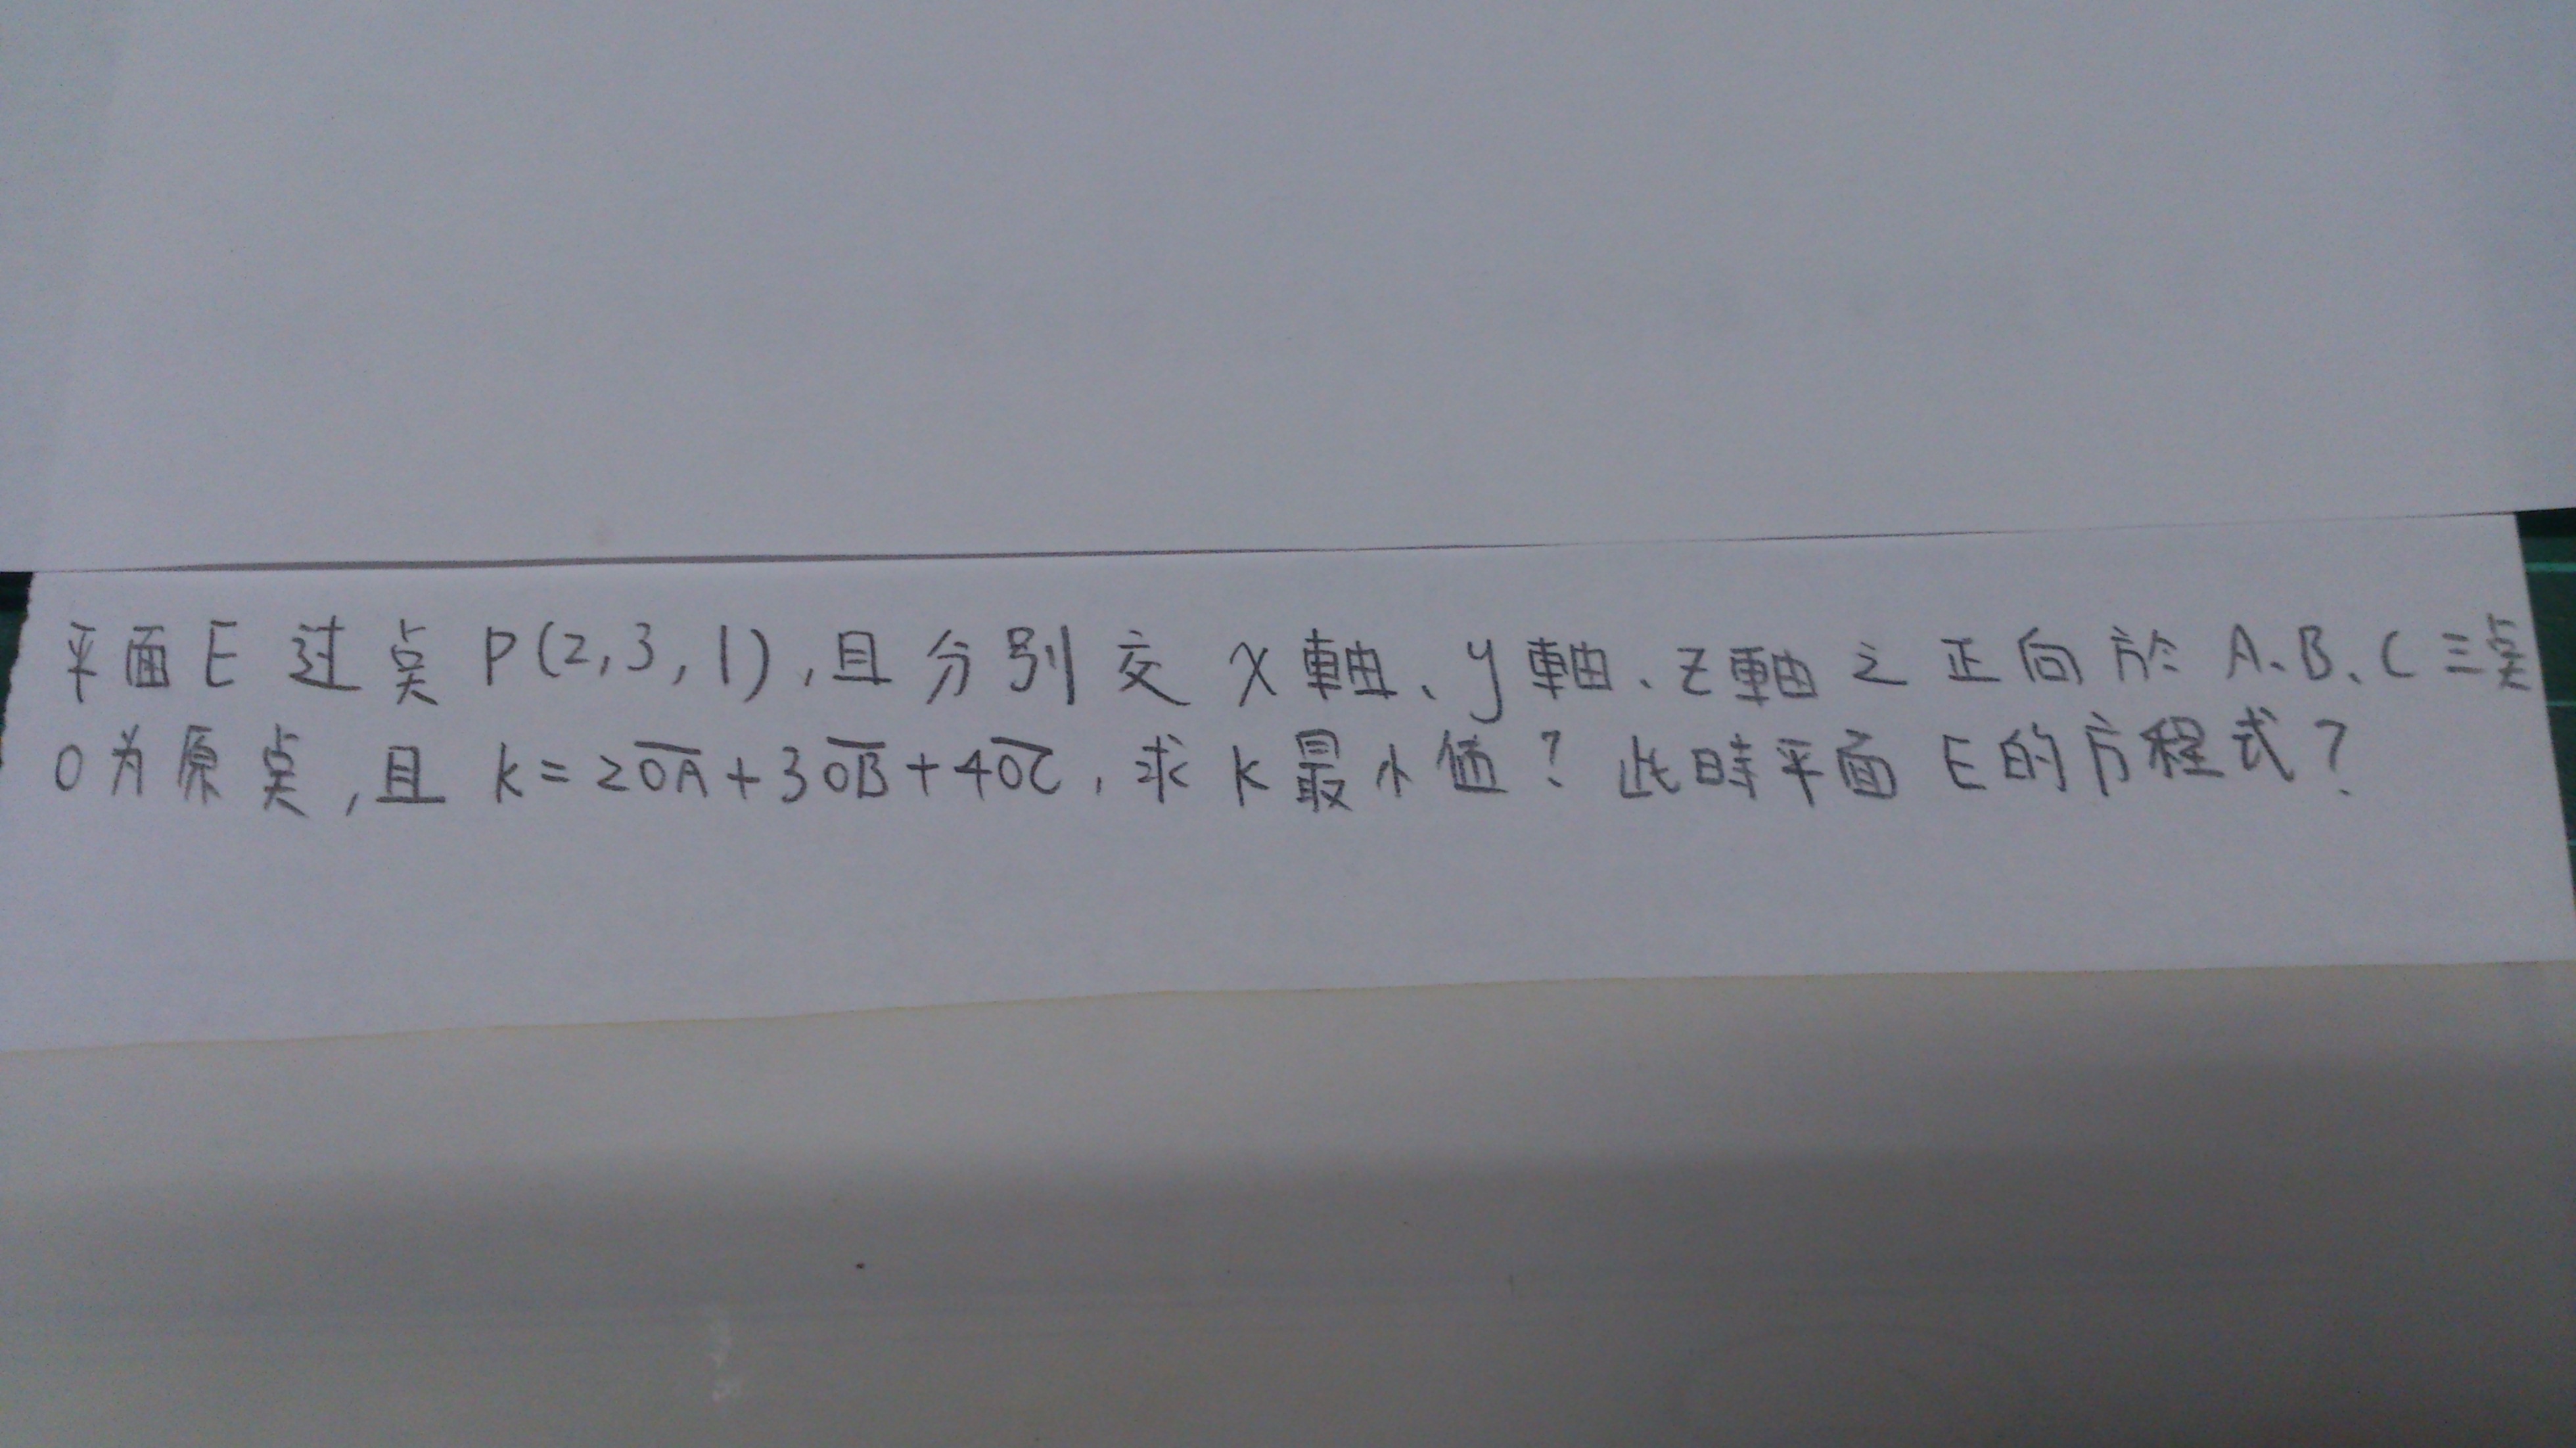 平面E过点P(2,3,1),且分別交x軸、y軸、z軸之正向於A、B、C三点
O为原点,且 k=2O͞A+3O͞B+4O͞C,求k最小值?此時平面E的方程式?